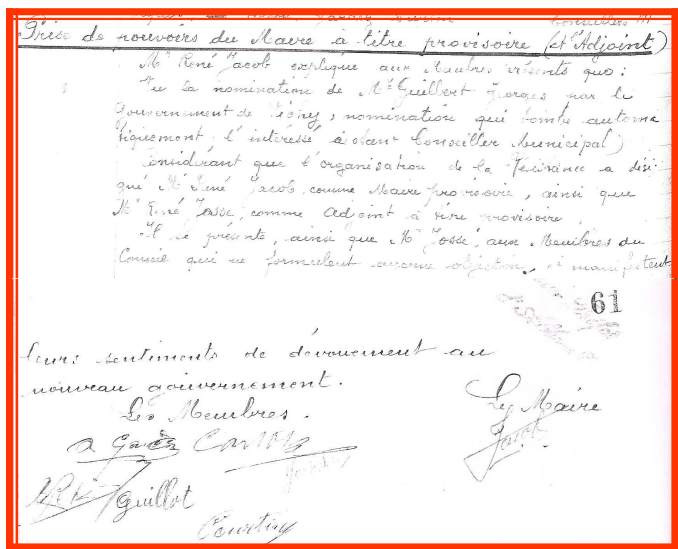 Conseillers M
Prise de pouvoirs du Maire à titre provisoire (et Adjoint)
Mr René Jacob explique aux Membres présents que :
Vu la nomination de Mr Guillbert Georges par le
Gouvernement de Vichy, nomination qui tombe automa
tiquement (l'intéressé étant Conseiller Municipal)
Considérant que l'organisation de la Résistance a dési
gné Mr René Jacob, comme Maire provisoire, ainsi que
Mr René Josse, comme Adjoint à titre provisoire,
Il se présente, ainsi que Mr Josse, aux Membres du
Conseil qui ne formulent aucune objection, manifestent
61
leurs sentiments de dévouement au
nouveau gouvernement.
Les Membres.
Le Maire
Jacob
Guillot
Courtin